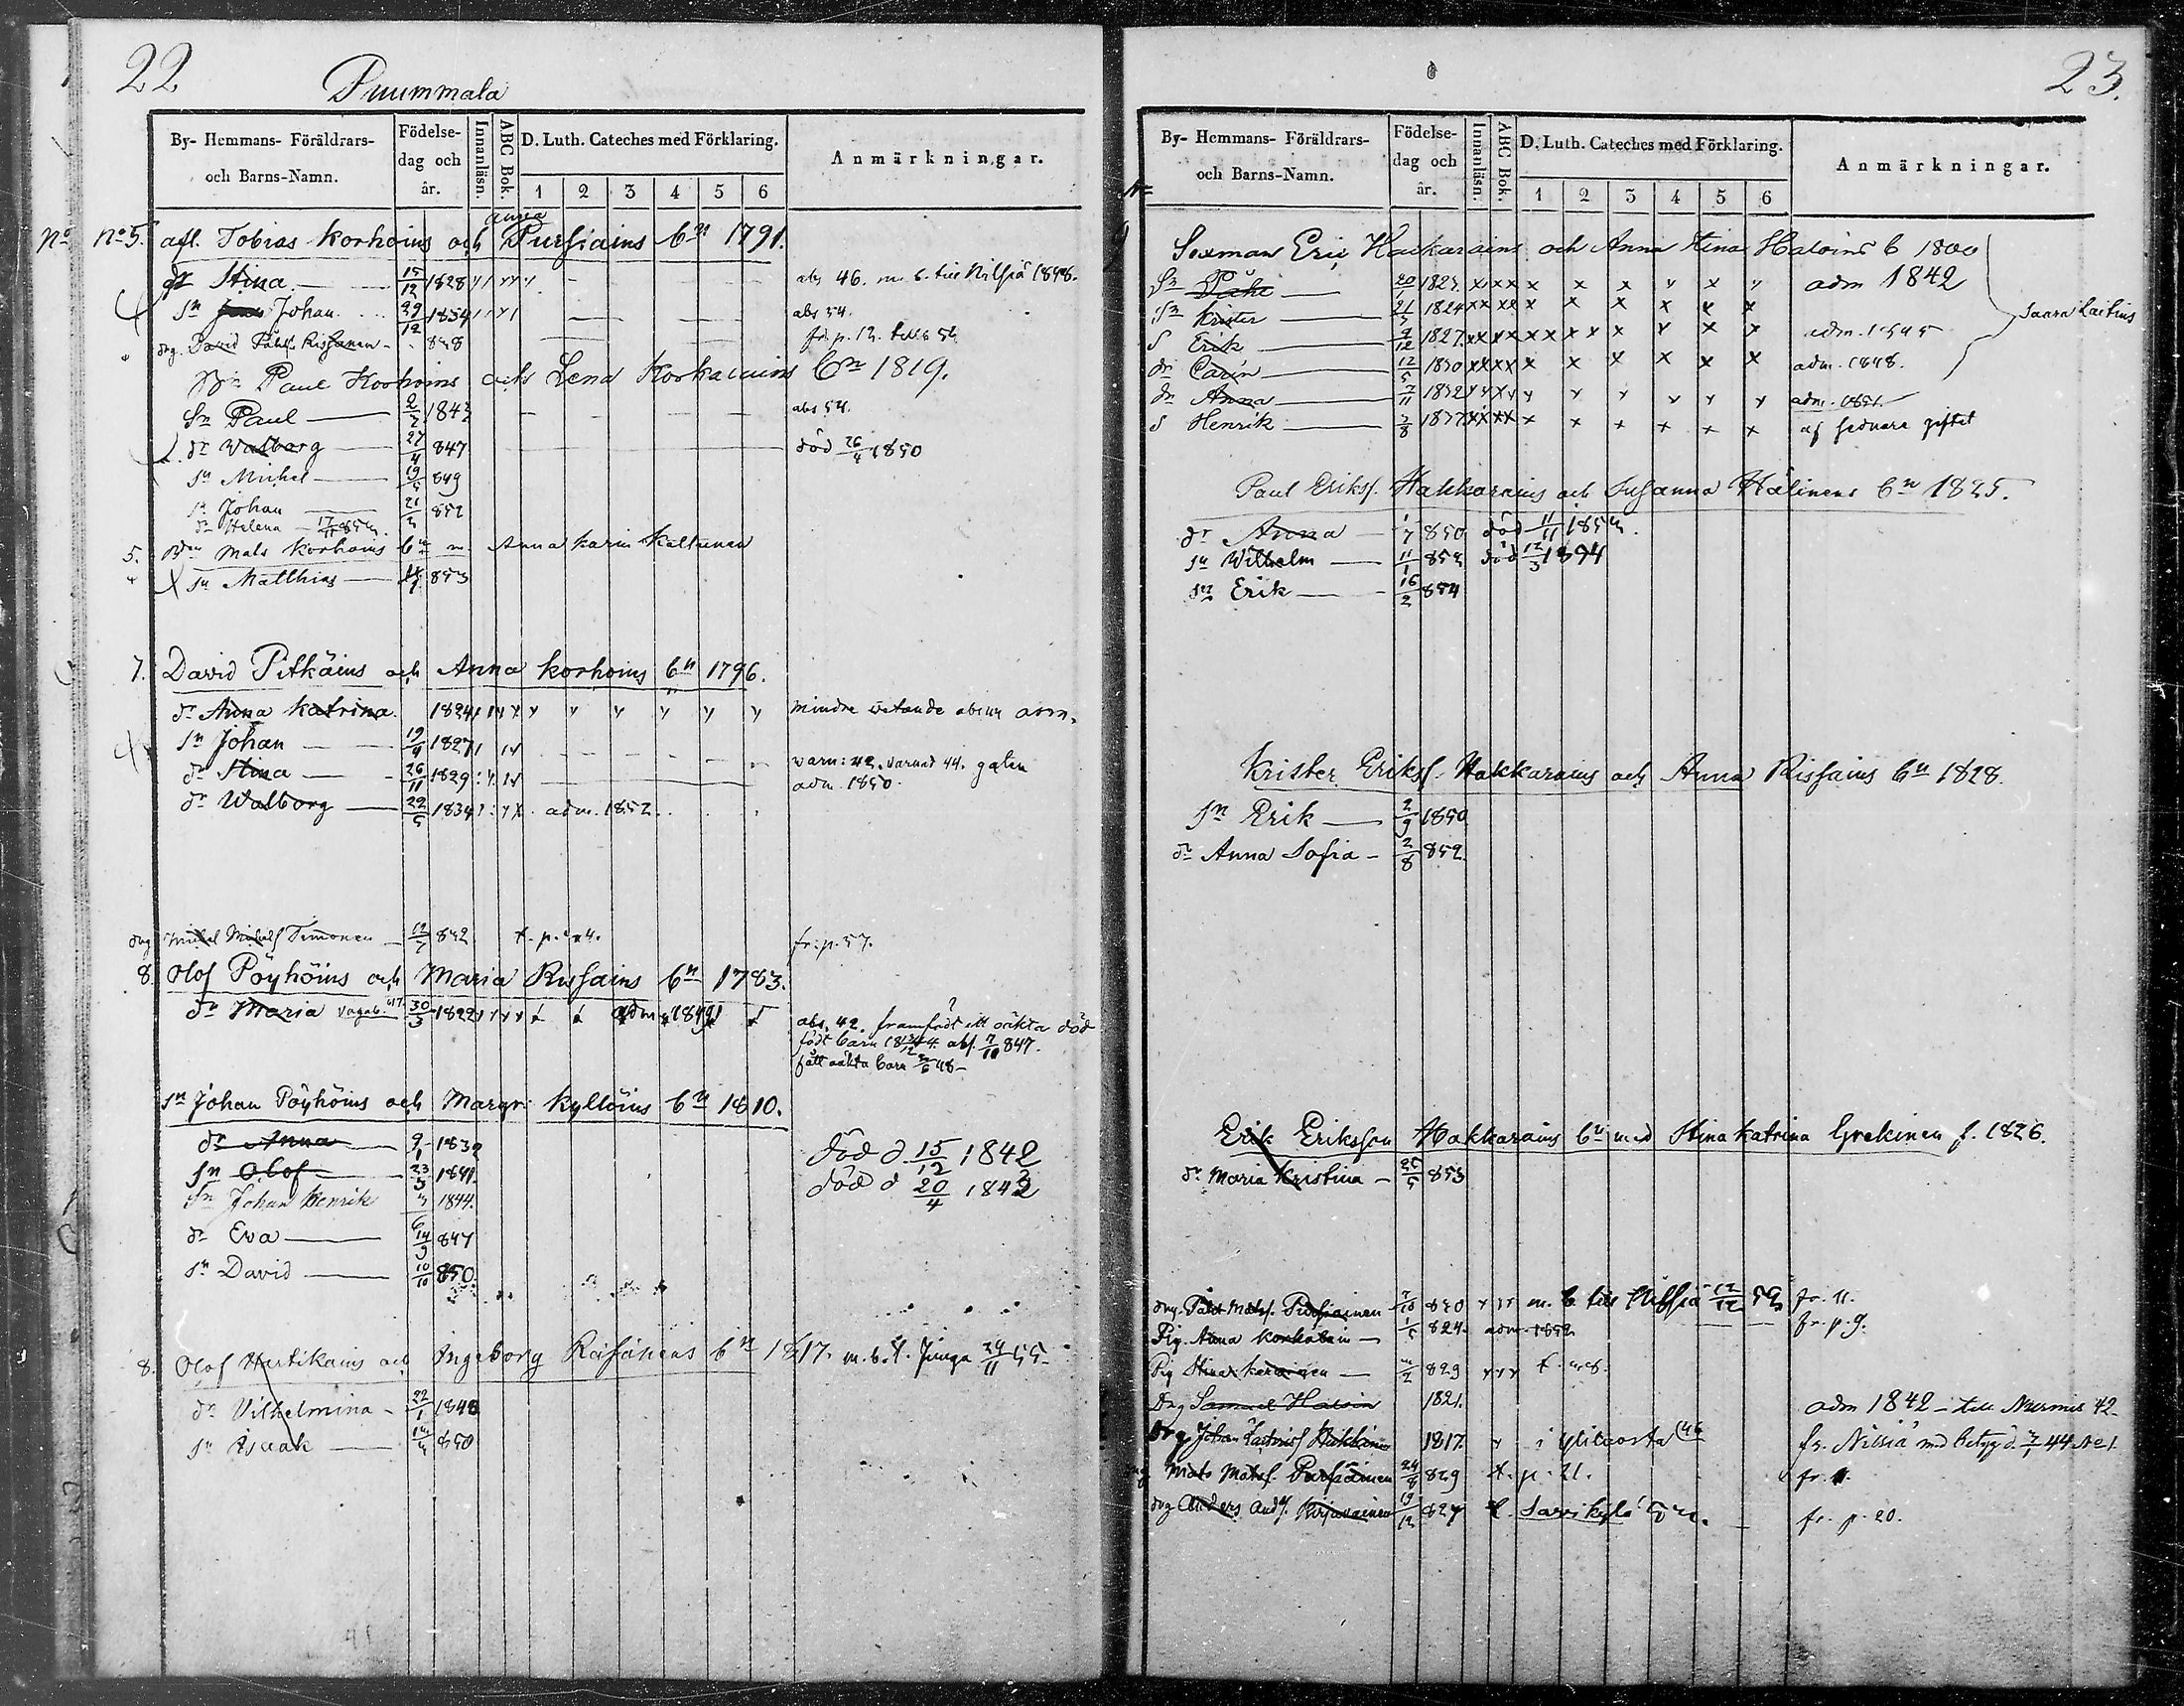 22
Puummala
By- Hemmans- Föräldrars- och Barns-Namn.
Födelse- dag och år.
Innanläsn.
ABC Bok.
D. Luth. Cateches med Förklaring.
1 2 3 4 5 6
Anmärkningar.
No No 5. afl. Tobias Korhoins och Pursiains bn 1791.
dr Stina 15/12 1828 abs 46. m. b. till Nilsiä 1848.
sn Johan 29/12 1834 abs 54.
drg. David Påhls. Rissanen 828 fr. p. 12.
Paul Korhoins och Lena Korkalains bn 1819.
Sn Paul 2/2 1843 abs 54.
dr Walborg 27/4 847 död 26/4 1850
sn Michel 19/5 849
sn Johan 21/2 852
dr Helena
5. Mats Korhoins bn m. Anna Karin Keltunen
sn Matthias 853
7. David Pitkäins och Anna Korhoins bn 1796.
dr Anna Katrina 1824 mindre vetande
sn Johan 19/9 1827
dr Stina 26/11 1829 varn: 42. varnad 44. galen adm. 1850.
dr Walborg 22/5 1834 adm. 1852.
drg Michel Michels Timonen 842 fr. p. 57.
8. Olof Pöyhöins och Maria Rissains bn 1783.
dr Maria 30/3 1822 adm 1849
abs. 42. framfödt ett oäkta död
födt barn abs. 7/10 847.
fått oäkta barn 48
sn Johan Pöyhöins och Margr: Kyllöins bn 1810.
dr Anna 9/1 1839 död d 15/12 1842
sn Olof 23/3 1841 död d 20/4 1842
sn Johan Henrik 1844.
dr Eva 14/9 847
sn David 10/10 850.
8. Olof Hartikains och Ingeborg Räsänens bn 1817. m. b. t. Junga 24/11 55
dr Vilhelmina 22/1 1848
sn Isaak 850
23.
By- Hemmans- Föräldrars- och Barns-Namn.
Födelse- dag och år.
Innanläsn.
ABC Bok.
D. Luth. Cateches med Förklaring.
1 2 3 4 5 6
Anmärkningar.
Sexman Eric Hackarains och Anna Stina Haloins b 1800
Sn Påhl adm 1842
Sn Krister 1824
S Erik 1827 adm. 1845
dr Carin 12/5 1830 adm. 1848.
dr Anna 7/11 1832 adm. 1851.
S Henrik 3/8 1837
Paul Eriks. Hakkarains och Susanna Hälinens bn 1825.
dr Anna 1/7 850 död
sn Wilhelm 11/1 död 12/3 1894
sn Erik 16/2 854
Krister Eriks. Hakkarains och Anna Rissains bn 1828.
sn Erik 2/9 1850
dr Anna Sofia 2/8 852.
Erik Eriksson Hakkarains bn med Stina Katrina Grekinen f. 1826.
dr Maria Kristina 25/5 853
drg. Påhl Mats. Pursiainen 7/10 830 m. b. till Nilsiä fr. 11.
Pig. Anna 1/5 824. adm. 1852 fr. p. 9.
Pig Stina 829
Drg Samuel Haloin 1821. adm 1842 till Nurmis 42
Drg Johan Hukkinen 1817. fr. Nilsiä med betyg 44 No 1.
drg Mats Mats. Pursiainen 24/8 829 t. p. 21. fr. 11.
drg Anders And. Kirjavainen 19/12 827 t. Sarvikylä fr. p. 20.